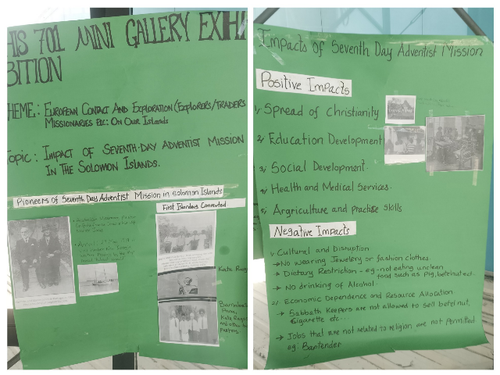 HIS 701 MINI GALLERY EXHI
BITION
HEME: EUROPEAN CONTACT AND EXPLORATION (EXPLORERS/TRADERS
MISSIONARIES ETC: ON OUR ISLANDS
TOPIC: IMPACT OF SEVENTH-DAY ADVENTIST MISSION
IN THE SOLOMON ISLANDS.
Pioneers of Seventh Day Adventist Mission in Solomon Islands
First Islanders Converted
Kata Rag
Impacts of Seventh Day Adventist Mission
Positive Impacts
1, Spread of Christianity
2, Education Development
3, Social Development.
4, Health and Medical Services.
5, Argriculture and Practise Skills
Negative Impacts
1, Cultural and Disruption
→ No wearing Jewelery or fashion clothes
→ Dietary Restriction - eg. not eating unclean
food such as Pig, betelnut
→ No drinking of Alcohol.
2, Economic Dependence and Resource Allocation
→ Sabbath Keepers are not allowed to sell betelnut,
cigarette etc...
→ Jobs that are not related to religion are not permitted
eg. Bartender